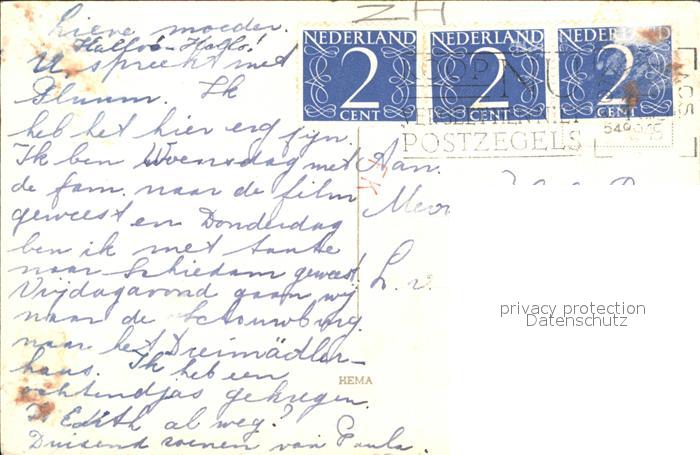 ZH
Lieve moeder.
Hallo! Hallo!
U spreekt met
Pluum. Ik
heb het hier erg fijn.
Ik ben Woensdag met
de fam. naar de film
geweest en Donderdag
ben ik met tante
naar Schiedam geweest.
Vrijdagavond gaan wij
naar de Schouwburg.
naar het Dreimädler-
haus. Ik heb een
ochtendjas gekregen.
Is Edith al weg?
Duizend zoenen van Paula.
NEDERLAND
2
CENT
NEDERLAND
2
CENT
NEDERLAND
2
CENT
POSTZEGELS
Aan.
Mevr
L. v.
HEMA
privacy protection
Datenschutz